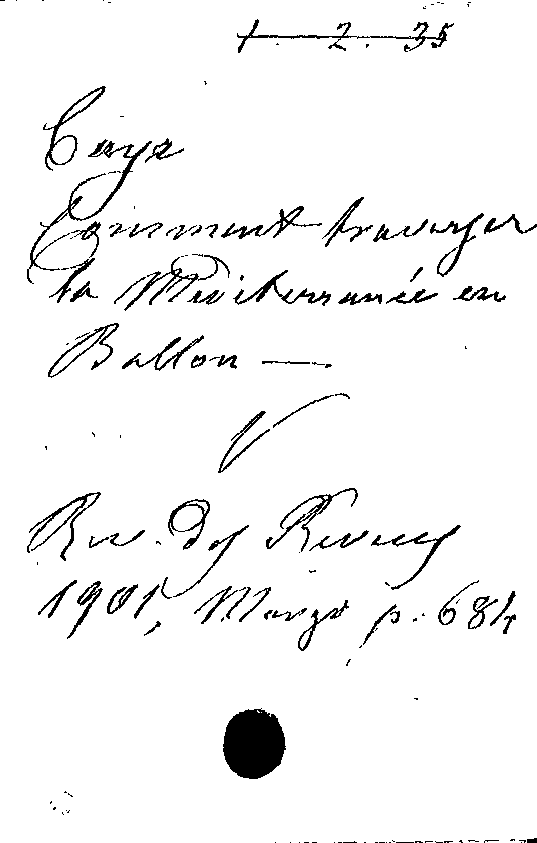 1. 2. 35
Caye
Comment traverser
la Méditerranée en
Ballon —
V
Rev. des Revues
1901, Marzo p. 684